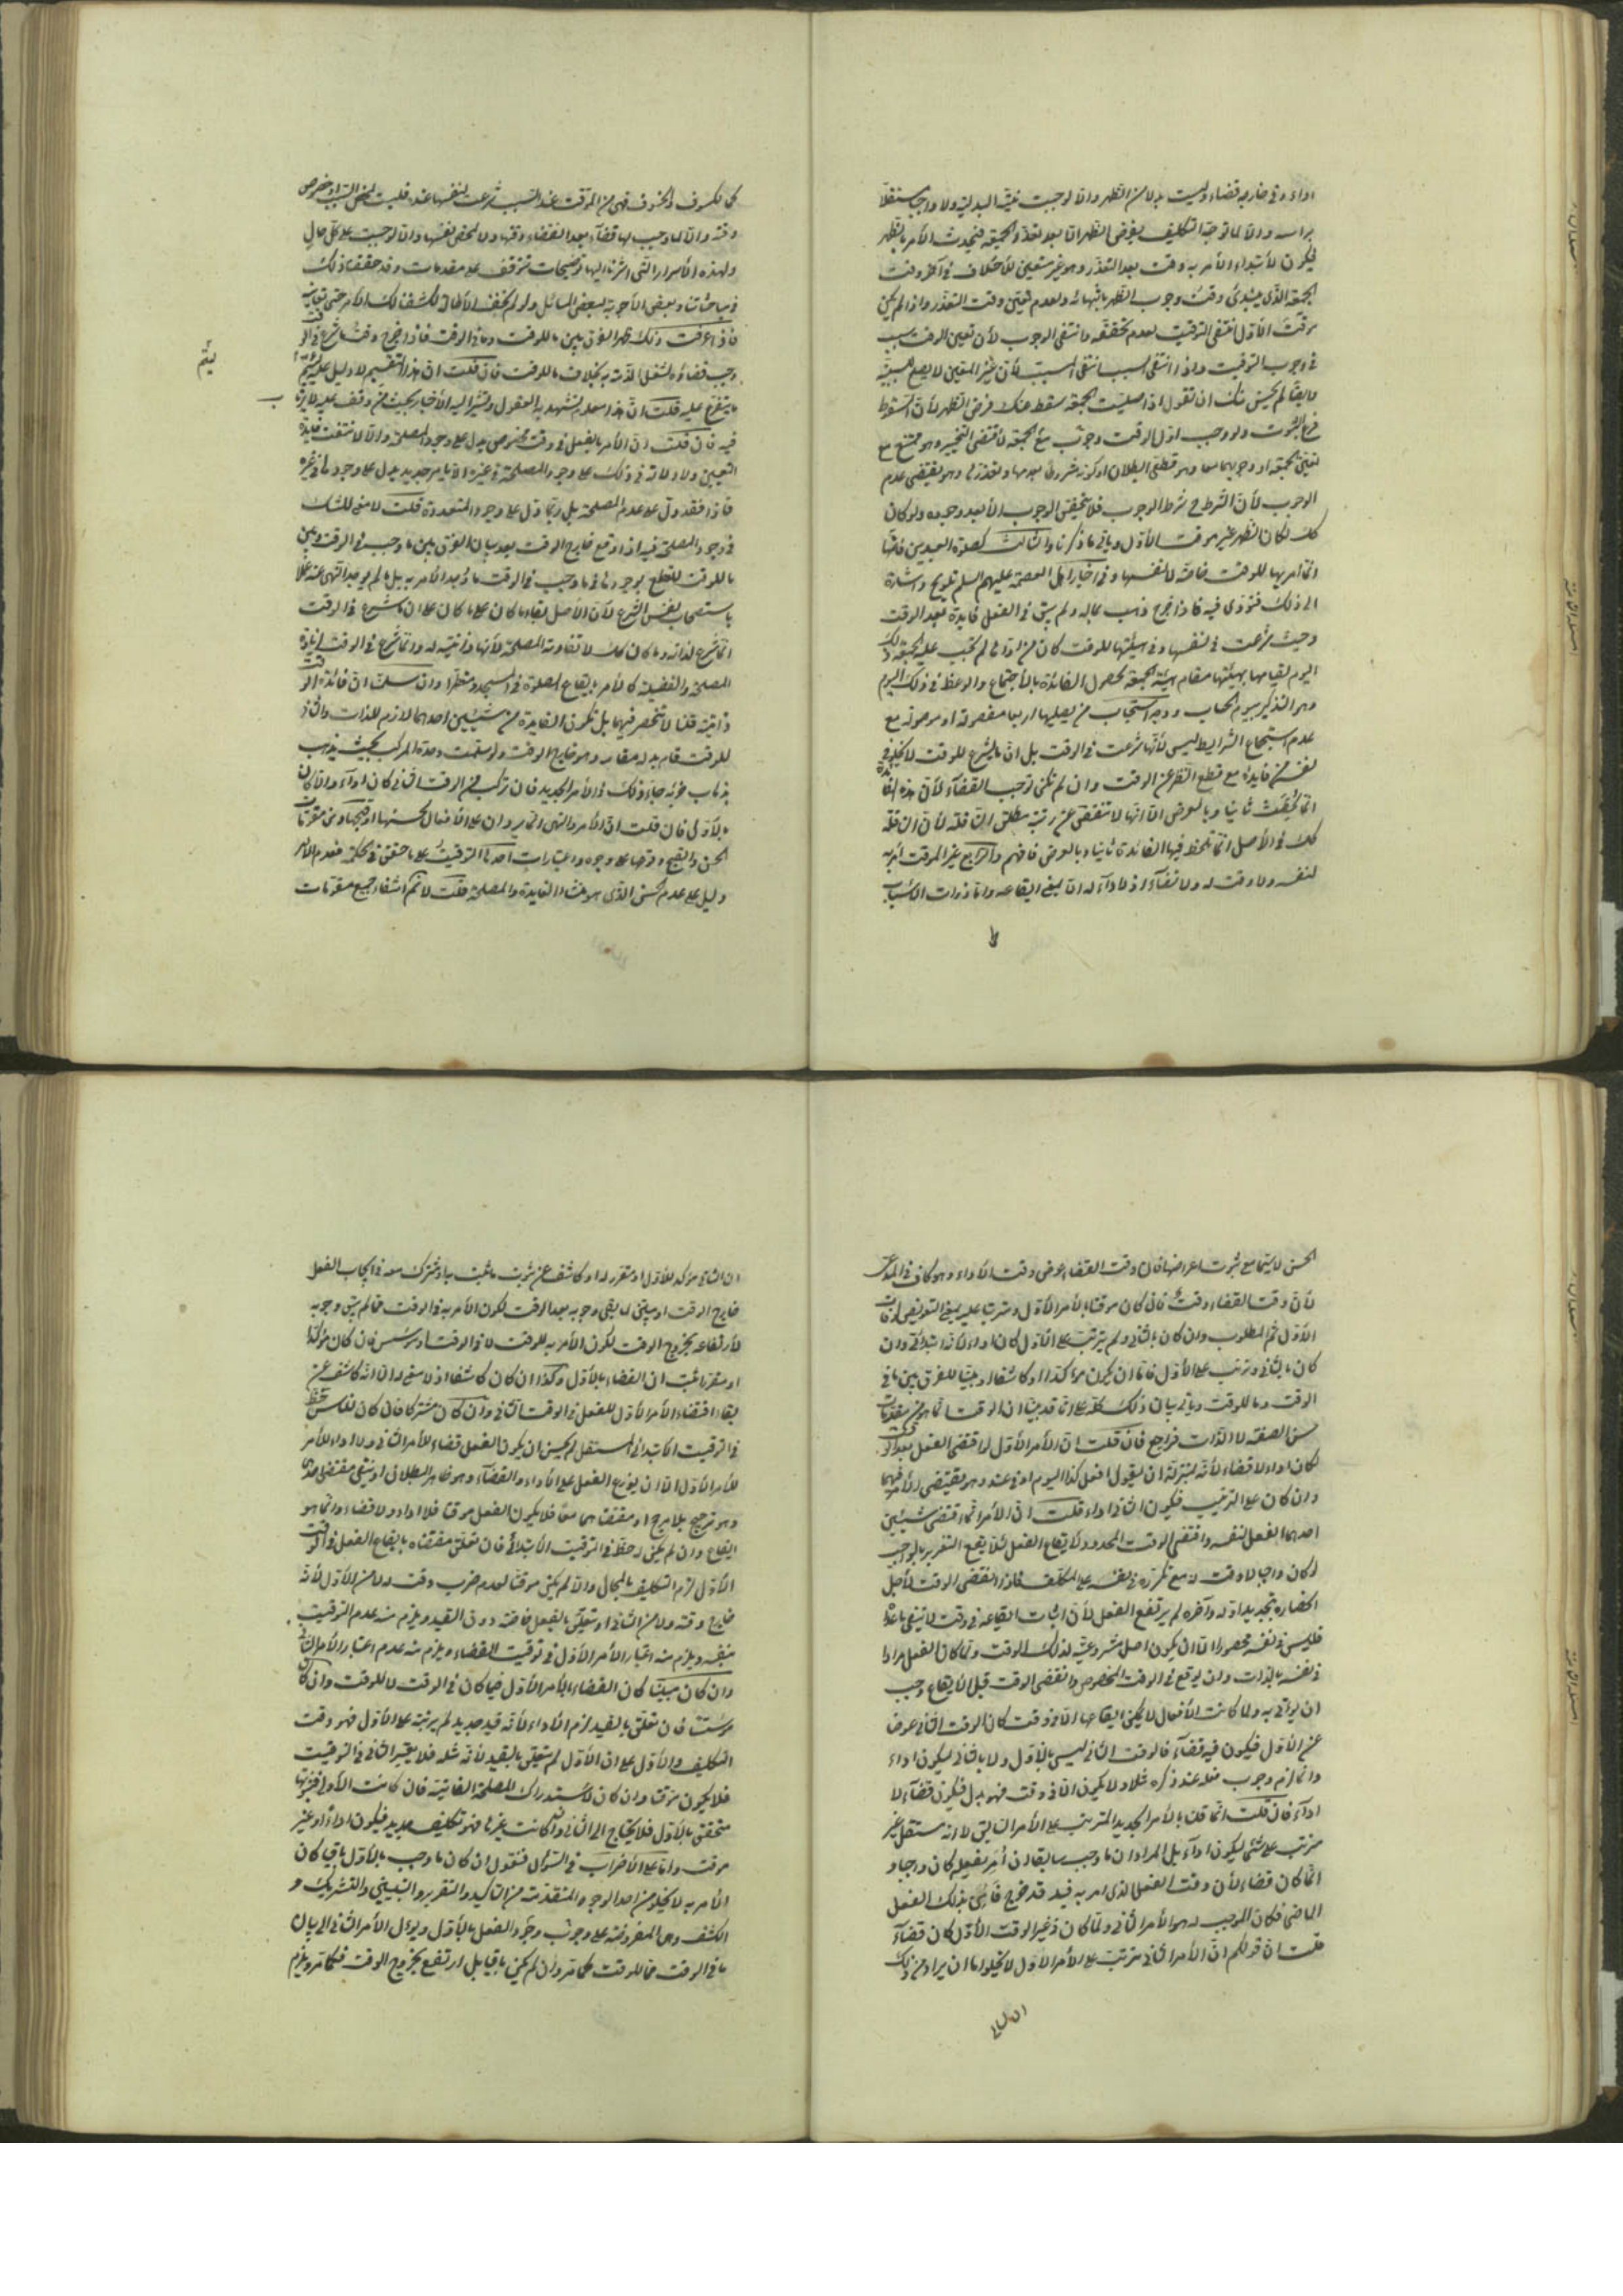 اداء وفي خارجه قضاء وليست بدلا من الظهر والا لوجبت نية البدلية ولا واجبا مستقلا
براسه والا لما توجه التكليف بفرض الظهر اتا بعد تعذر الجمعة فيحدث الأمر بالظهر
فيكون لأبتداء الأمر به وقت بعد التعذر وهو غير متعين للأختلاف في آخر وقت
الجمعة الذي يبتدئ وقت وجوب الظهر بانتهائه ولعدم تعين وقت التعذر واذا لم يكن
موقت الأول انتفى التوقيت لعدم تحققه وانتفى الوجوب لأن تعين الوقت سبب
في وجوب التوقيت واذا انتفى السبب انتفى المسبب لأن غير المتعين لا يصلح للسببية
وايضا لم يحسن منك ان تقول اذا صليت الجمعة سقط عنك فرض الظهر لأن السقوط
فرع الثبوت ولو وجب اول الوقت وجوب مع الجمعة لأقتضى التخيير وهو ممتنع مع
تعين الجمعة او وجوبهما معا وهو قطعي البطلان او كونه مشروطا بعدمها وتعذرها وهو يقتضي عدم
الوجوب لأن الشرط ح شرط الوجوب فلا يتحقق الوجوب الا بعد وجوده ولو كان
كك لكان الظهر غير موقت الأول وياتي ما ذكرنا والثالث كصلوة العيدين فانها
انما امر بها للوقت خاصة لا لنفسها وفي اخبار اهل العصمة عليهم السلم تلويح واشارة
الى ذلك فتؤدى فيه فاذا خرج ذهب بماله ولم يبق في الفعل فايدة بعد الوقت
وحيث شرعت في نفسها وفي هيئتها للوقت كان من اداها لم تجب عليه الجمعة ذلك
اليوم لقيامها بهيئتها مقام هيئة الجمعة لحصول الفائدة بالأجتماع والوعظ في ذلك اليوم
وهو التذكير بيوم الحساب ووجه استحباب من يصليها اربعا مفصولة او موصولة مع
عدم استجماع الشرايط ليس لأنها شرعت في الوقت بل ان ما يشرع للوقت لا يخلو في
نفسه من فايدة مع قطع النظر عن الوقت وان لم تكن توجب القضاء لأن هذه الفائدة
انما تحققت ثانيا وبالعرض الا انها لا تنقص عن رتبة مطلق النافلة لأن النافلة
كك في الأصل انما تلحظ فيها الفائدة ثانيا وبالعرض فافهم والرابع غير الموقت امر به
لنفسه ولا وقت له ولا قضاء اذ لا اداء له اتا بمعنى ايقاعه واما ذوات الأسباب
كالكسوف والخسوف فهي من الموقت عند السبب شرعت لنفسها عنده فليست لمحض السبب او خصوص
وقته والا لما وجب لها قضاء بعد انقضاء وقتها ولا لمحض نفسها والا لوجبت على كل حال
ولهذه الأسرار التي اشرنا اليها توضيحات تتوقف على مقدمات وقد حققنا ذلك
في مباحثاتنا وبعض الأجوبة لبعض المسائل ولو لم نخف الأطالة لكشفنا لك الأمر حتى تعاينه
فاذا عرفت ذلك ظهر الفرق بين ما للوقت وما في الوقت فاذا خرج وقت ما شرع في الوقت
وجب قضاؤه لشغل الذمة به بخلاف ما للوقت فان قلت ان هذا التقسيم لا دليل عليه ليتم
ما يتفرع عليه قلت ان هذا مما يشهد به العقول وتشير اليه الأخبار بحيث من وقف عليه لا يرتاب
يتم
فيه فان قلت ان الأمر بالفعل في وقت مخصوص يدل على وجود المصلحة والا لانتفت فايدة
التعيين ولا دلالة في ذلك على وجود المصلحة في غيره الا بامر جديد يدل على وجودها في غيره
فاذا فقد دل على عدم المصلحة بل ربما دل على وجود المفسدة قلت لا معنى للشك
في وجود المصلحة فيه اذا وقع خارج الوقت بعد بيان الفرق بين ما وجب في الوقت وبين
ما للوقت للقطع بوجودها في ما وجب في الوقت ما وجد الأمر به بل ما لم يوجد النهي عنه عملا
باستصحاب نفس الشرع لأن الأصل بقاء ما كان على ما كان على ان ما شرع في الوقت
انما شرع لذاته وما كان كك لا تفارقه المصلحة لأنها ذاتية له وانما شرع في الوقت لزيادة
المصلحة والفضيلة كالأمر بايقاع الصلوة في المسجد ومتطهرا وان سلمنا ان فائدة الوقت
ذاتية قلنا لا تنحصر فيها بل تكون الفايدة من شيئين احدهما لازم للذات والثاني
للوقت قام بدله مقامه وهو خارج الوقت ولو سلمت وحدة المركب بحيث يذهب
بذهاب جزئه جاء ذلك في الأمر الجديد فان تركب من الوقت الثاني كان اداء والا كان
بالأولى فان قلت ان الأمر والنهي انما يردان على الأفعال لحسنها او قبحها ومن مقومات
الحسن والقبح وقوعها على وجوه واعتبارات احدها التوقيت على ما حقق في الحكمة فعدم الأمر
دليل على عدم الحسن الذي هو منشأ الفايدة والمصلحة قلت لا نم انتفاء جميع مقومات
الحسن لا سيما مع ثبوت اعراضها فان وقت القضاء عوض وقت الأداء وهو كاف في المدعى
لأن وقت القضاء وقت فان كان موقتا بالأمر الأول ومترتبا عليه بمعنى التعويض لوقت
الأول ثم المطلوب وان كان بالثاني ولم يترتب على الأول كان اداء لأنه ابتدائي وان
كان بالثاني وترتب على الأول فاما ان يكون مؤكدا او كاشفا او مبينا للفرق بين ما في
الوقت وما للوقت وياتي بيان ذلك كله على انا قد بينا ان الوقت انما هو من مقدمات
حسن الصفة لا الذات فراجع فان قلت ان الأمر الأول لو اقتضى الفعل بعد الوقت
لكان اداء لا قضاء لأنه بمنزلة ان يقول افعل كذا اليوم او في غد وهو يقتضي الأمر فيهما
وان كان على الترتيب فيكون الثاني اداء قلت ان الأمر انما اقتضى شيئين
احدهما الفعل لنفسه واقتضى الوقت المحدود لأيقاع الفعل لئلا يقع التغرير بالواجب
لو كان واجبا لا وقت له مع تكرره في نفسه على المكلف فاذا انقضى الوقت لأجل
انحصاره بتحديد اوله وآخره لم يرتفع الفعل لأن اثبات ايقاعه في وقت لا ينفي ما عداه
فليس في نفسه محصورا الا ان يكون اصل مشروعيته لذلك الوقت ولما كان الفعل مرادا
في نفسه بالذات وان يوقع في الوقت المخصوص وانقضى الوقت قبل الأيقاع وجب
ان يؤتى به ولما كانت الأفعال لا يمكن ايقاعها الا في وقت كان الوقت الثاني عوضا
عن الأول فيكون فيه قضاء فالوقت الثاني ليس بالأول ولا بالثاني ليكون اداء
وانما لزم وجوب فعله عند ذكره مثلا ولا يكون الا في وقت فهو بدل فيكون قضاء لا
اداء فان قلت انما قلنا بالأمر الجديد المترتب على الأمر السابق لا انه مستقل غير
مترتب على شئ ليكون اداء بل المراد ان ما وجب سابقا ان امر بفعله كان واجبا و
انما كان قضاء لأن وقت الفعل الذي امر به فيه قد خرج فاتى بذلك الفعل
الماضي فكان الموجب له هو الأمر الثاني ولما كان في غير الوقت الأول كان قضاء
قلت ان قولكم ان الأمر الثاني مترتب على الأمر الأول لا يخلو اما ان يراد من ذلك
ان الثاني
ان الثاني مؤكد للأول او مقرر له او كاشف عن ثبوت ما ثبت به او مشترك معه في ايجاب الفعل
خارج الوقت او مبين لما يبقى وجوبه بعد الوقت لكون الأمر به في الوقت مما لم يبق وجوبه
لأرتفاعه بخروج الوقت لكون الأمر به للوقت لا في الوقت او مؤسس فان كان مؤكدا
او مقررا ثبت ان القضاء بالأول وكذا ان كان كاشفا اذ لا معنى له الا انه كاشف عن
بقاء اقتضاء الأمر الأول للفعل في الوقت الثاني وان كان مشتركا فان كان للثاني حظ
في التوقيت الأبتدائي المستقل لم يحسن ان يكون الفعل قضاء للأمر الثاني ولا اداء للأمر
للأمر الأول الا ان يوزع الفعل على الأداء والقضاء وهو ظاهر البطلان او ينفى مقتضى احدهما
وهو ترجيح بلا مرجح او مقتضاهما معا فلا يكون الفعل موقتا فلا اداء ولا قضاء وانما هو
ايقاع وان لم يكن له حظ في التوقيت الأبتدائي فان تعلق مقتضاه بايقاع الفعل في الوقت
الأول لزم التكليف بالمحال والا لم يكن موقتا لعدم ضرب وقت له لا من الأول لأنه
خارج وقته ولا من الثاني او متعلق بالفعل خاصة دون القيد ويلزم منه عدم التوقيت
بنفسه ويلزم منه اعتبار الأمر الأول في توقيت القضاء ويلزم منه عدم اعتبار الأمر الثاني
وان كان مبينا كان القضاء بالأمر الأول فيما كان في الوقت لا للوقت وان كان
مؤسسا فان تعلق بالقيد لزم الأداء لأنه قيد جديد لم يرتبه على الأول فهو وقت
التكليف والأول على ان الأول لم يتعلق بالقيد لأنه مثله فلا يعتبر الثاني في التوقيت
فلا يكون موقتا وان كان لأستدراك المصلحة الفائتة فان كانت الأولى فثبوتها
متحقق بالأول فلا يحتاج الى الثاني وان كانت غيرها فهو تكليف جديد فيكون اداء او غير
موقت واما على الأضراب في السؤال فنقول ان كان ما وجب بالأول باقيا كان
الأمر به لا يخلو من احد الوجوه المتقدمة من التاكيد والتقرير والتبيين والتشريك و
الكشف وهي المفروضة على وجوب وجود الفعل بالأول ويؤل الأمر الثاني الى بيان
ما في الوقت مما للوقت كما مر وان لم يكن باقيا بل ارتفع بخروج الوقت فكما مر ويلزم